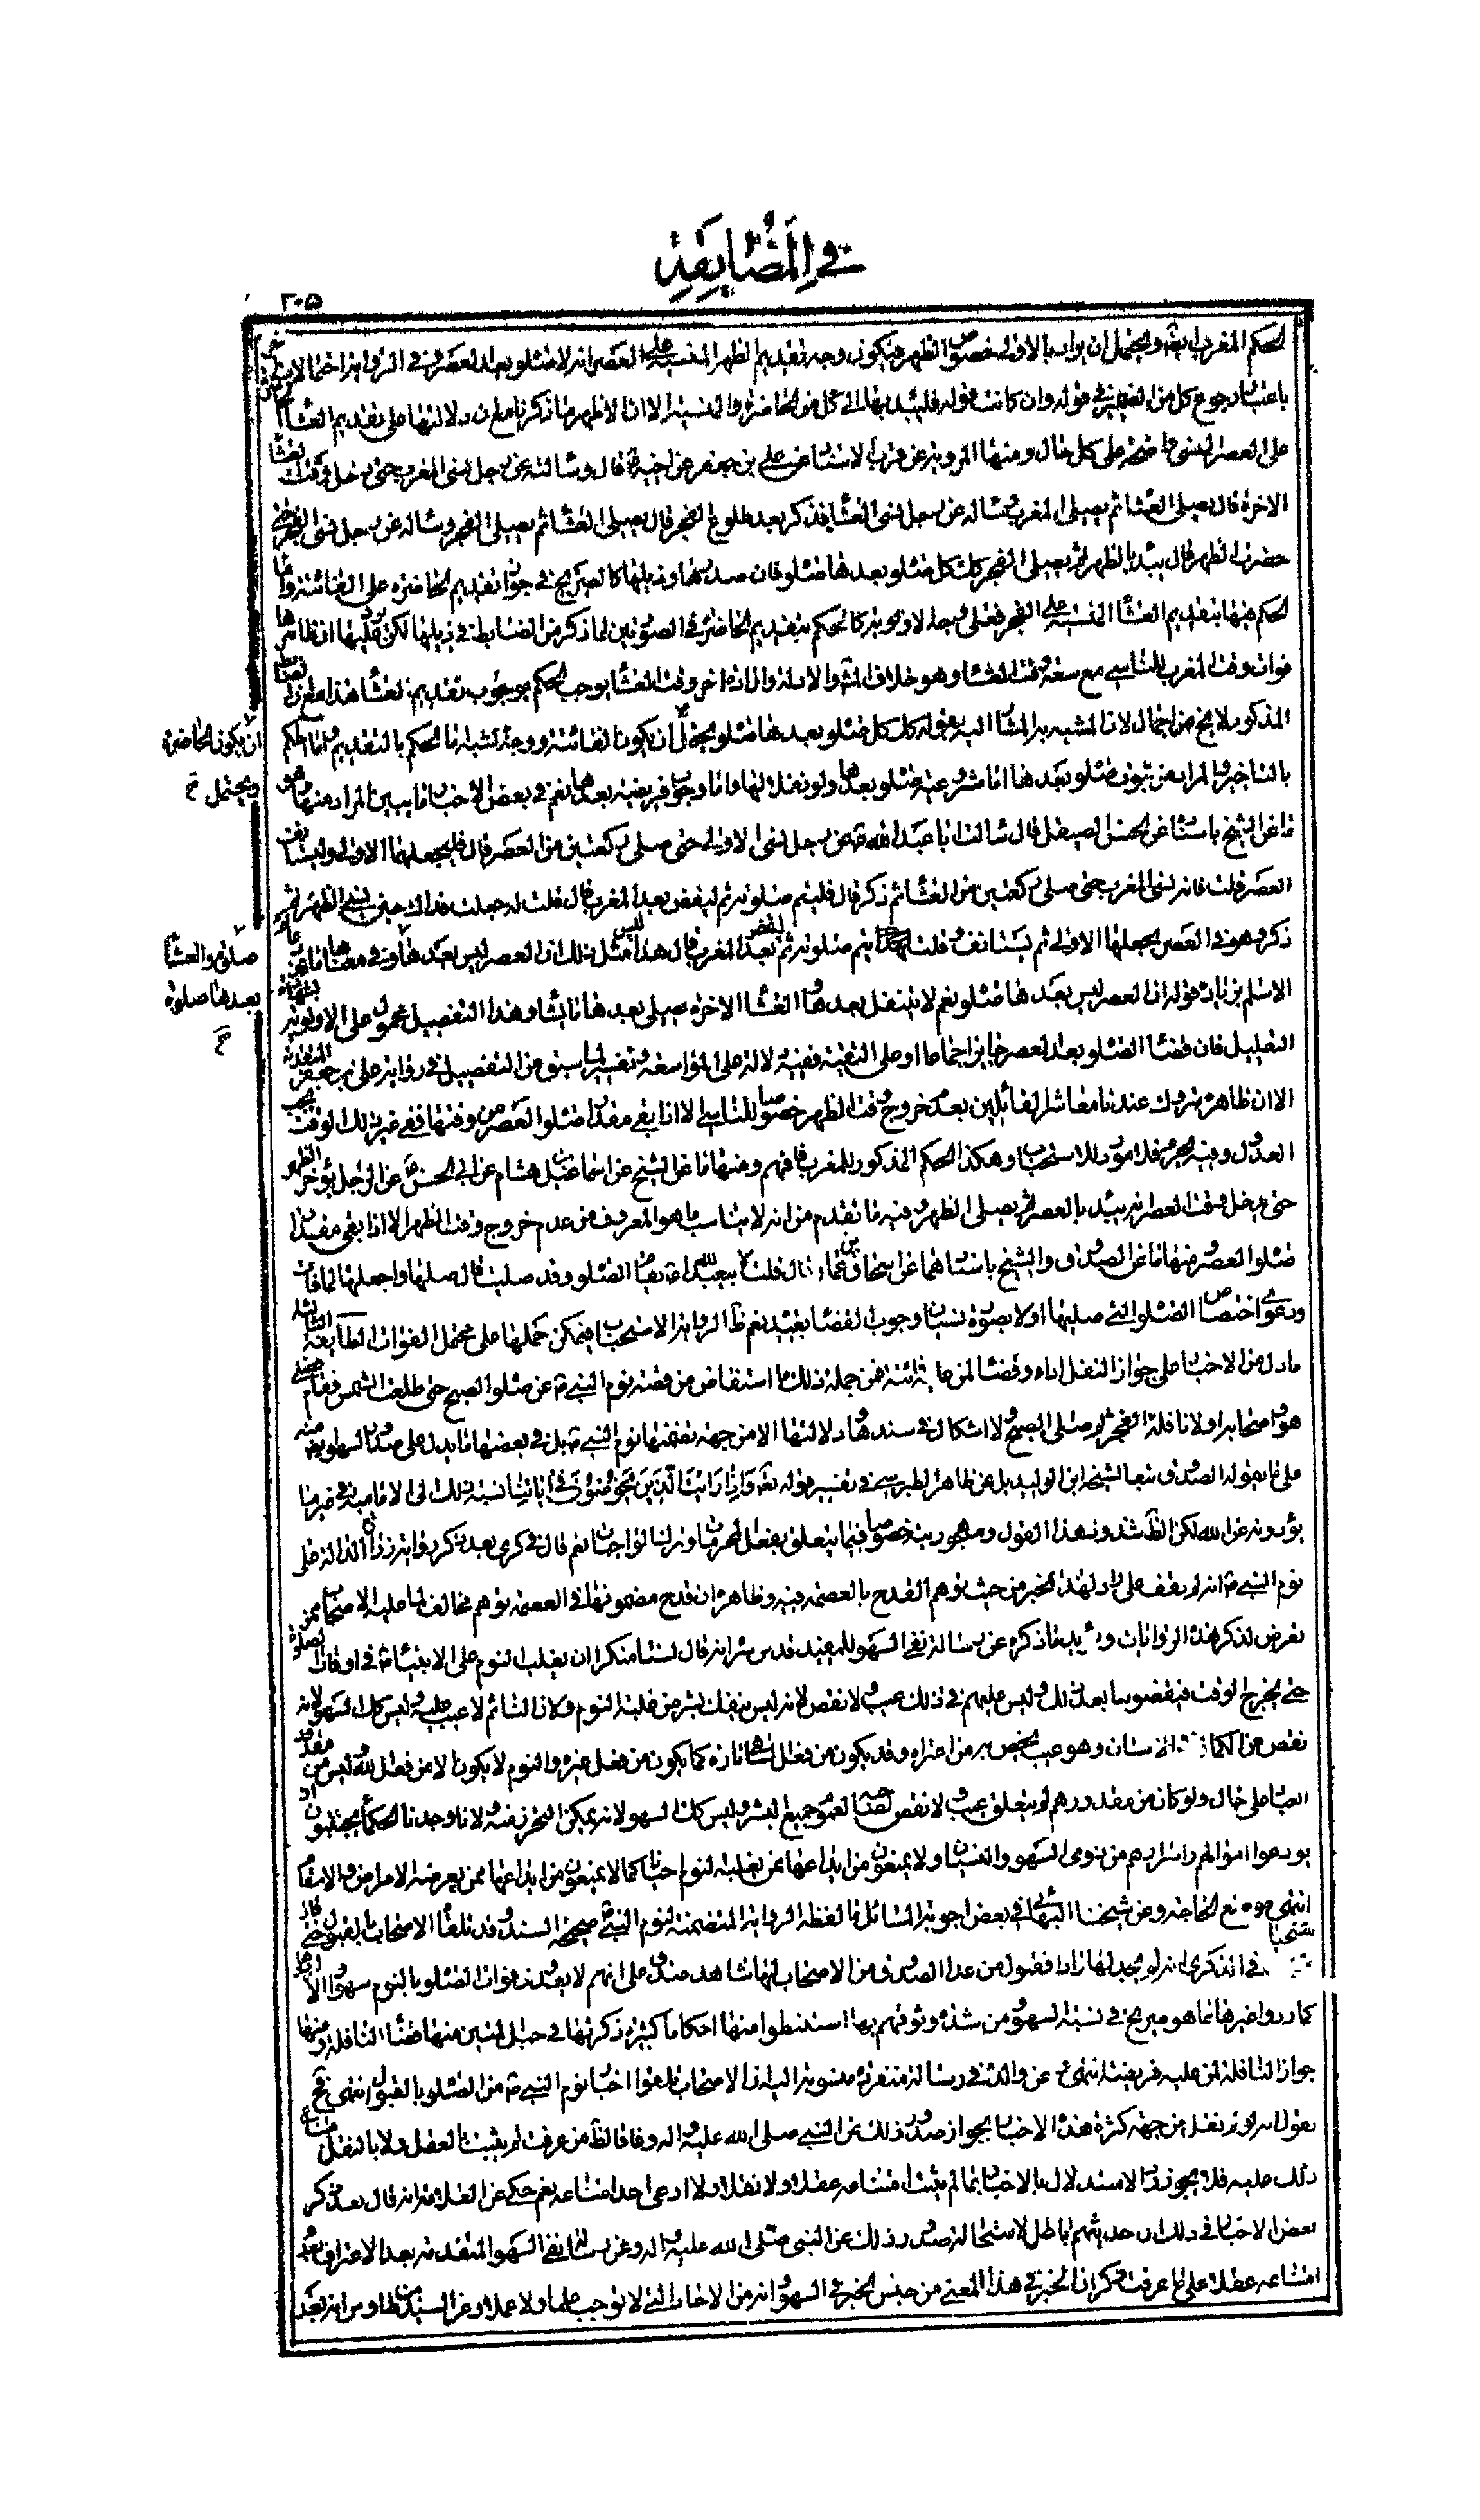 في المضايقة
٣٠٥
الحكم المغرب ايضا ويحتمل ان يراد بالاولى خصوص الظهر فيكون وجه تقديم الظهر المنسية على العصر انه لا صلوة بعد العصر
باعتبار رجوع كل من الضميرين في قوله وان كانت قوله فليبدء بها الى كل من الحاضرة والمنسية الا ان الاظهر ما ذكرنا مع ان دلالتها على تقديم العشاء
على العصر المنسي واضحة على كل حال ومنها المروية عن قرب الاسناد عن علي بن جعفر عن اخيه ع قال وسالته عن رجل نسي المغرب حتى دخل وقت العشاء
الاخرة قال يصلي العشاء ثم يصلي المغرب وساله عن رجل نسي العشاء فذكر بعد طلوع الفجر قال يصلي العشاء ثم يصلي الفجر وساله عن رجل نسي الفجر حتى
حضرت الظهر قال يبدء بالظهر ثم يصلي الفجر كذلك كل صلوة بعدها صلوة فان صدرها وذيلها كالصريح في جواز تقديم الحاضرة على الفائتة واما
الحكم فيها بتقديم العشاء المنسية على الفجر فعلى وجه الاولوية كالحكم بتقديم الحاضرة في الصورتين لما ذكر من الضابطة في ذيلها لكن يرد عليها ان ظاهرها
فوات وقت المغرب للناسي مع سعة وقت العشاء وهو خلاف المش والادلة وارادة اخر وقت العشاء يوجب الحكم بوجوب تقديم العشاء هذا مع ان الضابط
المذكور لا يخ من اجمال لان المشبه به المشار اليه بقوله كل كل صلوة بعدها صلوة يحتمل ان يكون الفائتة ووجه الشبه اما الحكم بالتقديم واما الحكم
ان يكون الحاضرة
ويحتمل
بالتاخير والمراد من ثبوت صلوة بعدها اما مشروعية صلوة بعدها ولو نفلا لها واما وجوب فريضة بعدها نعم في بعض الاخبار ما يبين المراد منها وهو
ما عن الشيخ باسناده عن الحسن الصيقل قال سالت ابا عبد الله ع عن رجل نسي الاولى حتى صلى ركعتين من العصر قال فليجعلها الاولى وليستانف
العصر قلت فانه نسي المغرب حتى صلى ركعتين من العشاء ثم ذكر قال فليتم صلوته ثم ليقض بعد المغرب قال قلت له جعلت فداك حين نسي الظهر ثم
ذكر وهو في العصر يجعلها الاولى ثم يستانف وقلت لهذا يتم صلوته ثم ليقض بعد المغرب قال ليس هذا مثل ذلك ان العصر ليس بعدها
صلوة والعشاء
بعدها صلوة
الاسلم بزيادة قوله ان العصر ليس بعدها صلوة نعم لا يتنفل بعدها والعشاء الاخرة يصلي بعدها ما يشاء وهذا التفصيل محمول على الاولوية
التعليل فان قضاء الصلوة بعد العصر جايز اجماعا او على التقية ففيه دلالة على المواسعة وتفسير لما سبق من التفصيل في رواية علي بن جعفر المتقدمة
الا ان ظاهره متروك عندنا معاشر القائلين بعدم خروج وقت الظهر خصوصا للناسي الا اذا بقي مقدار صلوة العصر من وقتها ففي غير ذلك الوقت يجب
العدول وفيه مورد للاستحباب وهكذا الحكم المذكور للمغرب فافهم ومنها ما عن الشيخ عن اسماعيل بن هشام عن ابي الحسن ع عن الرجل يؤخر الظهر
حتى يدخل وقت العصر انه يبدء بالعصر ثم يصلي الظهر وفيه ما تقدم من انه لا يناسب ما هو المعروف من عدم خروج وقت الظهر الا اذا بقي مقدار
صلوة العصر ومنها ما عن الصدوق والشيخ باسنادهما عن اسحاق بن عمار قال قلت لابيعبد الله ع تقام الصلوة وقد صليت قال صلها واجعلها لما فات
ودعوى اختصاص الصلوة التي صليها اولا بصورة نسيان وجوب القضاء بعيد نعم ظ الرواية الاستحباب فيمكن حملها على محتمل الفوات الطائفة الثالثة
ما دل من الاخبار على جواز النفل اداء وقضاء لمن عليه فائتة فمن جملة ذلك ما استفاض من قصة نوم النبي ص عن صلوة الصبح حتى طلعت الشمس فقام فصلى
هو واصحابه اولا نافلة الفجر ثم صلى الصبح ولا اشكال في سندها ودلالتها الا من جهة تضمنها نوم النبي ص بل في بعضها ما يدل على صدور السهو منه
على ما يقوله الصدوق تبعا لشيخه ابن الوليد بل عن ظاهر الطبرسي في تفسير قوله تعالى وَاِذا رَاَيْتَ الَّذينَ يَخوُضُونَ في اياتِنا نسبة ذلك الى الامامية في غير ما
يؤدونه عن الله لكن الظ شذوذ هذا القول ومهجوريته خصوصا فيما يتعلق بفعل المحرمات وترك الواجبات نعم قال في كرى بعد ذكر رواية زرارة الدالة على
نوم النبي ص انه لم يقف على راد لهذا الخبر من حيث توهم القدح بالعصمة فيه وظاهره ان قدح مضمونها في العصمة توهم مخالف لما عليه الاصحاب ممن
تعرض لذكر هذه الروايات ويؤيد ما ذكره عن رسالة نفي السهو للمفيد قدس سره انه قال لسنا ننكر ان يغلب النوم على الانبياء ع في اوقات الصلوة
حتى يخرج الوقت فيقضوها بعد ذلك وليس عليهم في ذلك عيب ولا نقص لانه ليس ينفك بشر من غلبة النوم ولان النائم لا عيب عليه وليس كذلك السهو لانه
نقص من الكمال في الانسان وهو عيب يختص به من اعتراه وقد يكون من فعل الساهي تارة كما يكون من فعل غيره والنوم لا يكون الا من فعل الله وليس من مقدور
العباد على حال ولو كان من مقدورهم لم يتعلق به عيب ولا نقص لصاحبه لعمومه جميع البشر وليس كذلك السهو لانه يمكن التحرز منه ولانا وجدنا الحكماء يجتنبون ان
يودعوا اموالهم واسرارهم من ذوي السهو والنسيان ولا يمتنعون من ايداعها ممن يغلبه النوم احيانا كما لا يمتنعون من ايداعها ممن يعرضه الامراض والاسقام
انتهى موضع الحاجة وعن شيخنا البهائي في بعض اجوبة المسائل ان لفظة الرواية المتضمنة لنوم النبي ص صحيحة السند وقد تلقاها الاصحاب بالقبول حتى قال
في الذكرى انه لم يجد لها رادا فقبول من عدا الصدوق من الاصحاب لها شاهد صدق على انهم لا يعدون فوات الصلوة بالنوم سهوا والا لردوها
كما ردوا غيرها مما هو صريح في نسبة السهو ومن شدة وثوقهم بها استنبطوا منها احكاما كثيرة ذكرتها في حبل المتين منها قضاء النافلة ومنها
جواز النافلة لمن عليه فريضة انتهى وعن والده في رسالة متفرقة منسوبة اليه ان الاصحاب تلقوا اخبار نوم النبي ص من الصلوة بالقبول انتهى فح
نقول من جهة كثرة هذه الاخبار بجواز صدور ذلك عن النبي صلى الله عليه واله وفاقا لظ من عرفت لم يثبت العقل ولا بالنقل امتناع
ذلك عليه فلا يجوز رد الاستدلال بالاخبار بما لم يثبت امتناعه عقلا ولا نقلا ولا ادعى احد امتناعه نعم حكي عن العلامة انه قال بعد ذكر
بعض الاخبار في ذلك ان حديثهم باطل لاستحالة صدور ذلك عن النبي صلى الله عليه واله وعن رسالة نفي السهو المتقدمة بعد الاعتراف بعدم
امتناعه عقلا على ما عرفت ذكر ان الخبر في هذا المعنى من جنس الخبر في السهو وانه من الاحاد التي لا توجب علما ولا عملا وعن السيد بن طاوس انه بعد